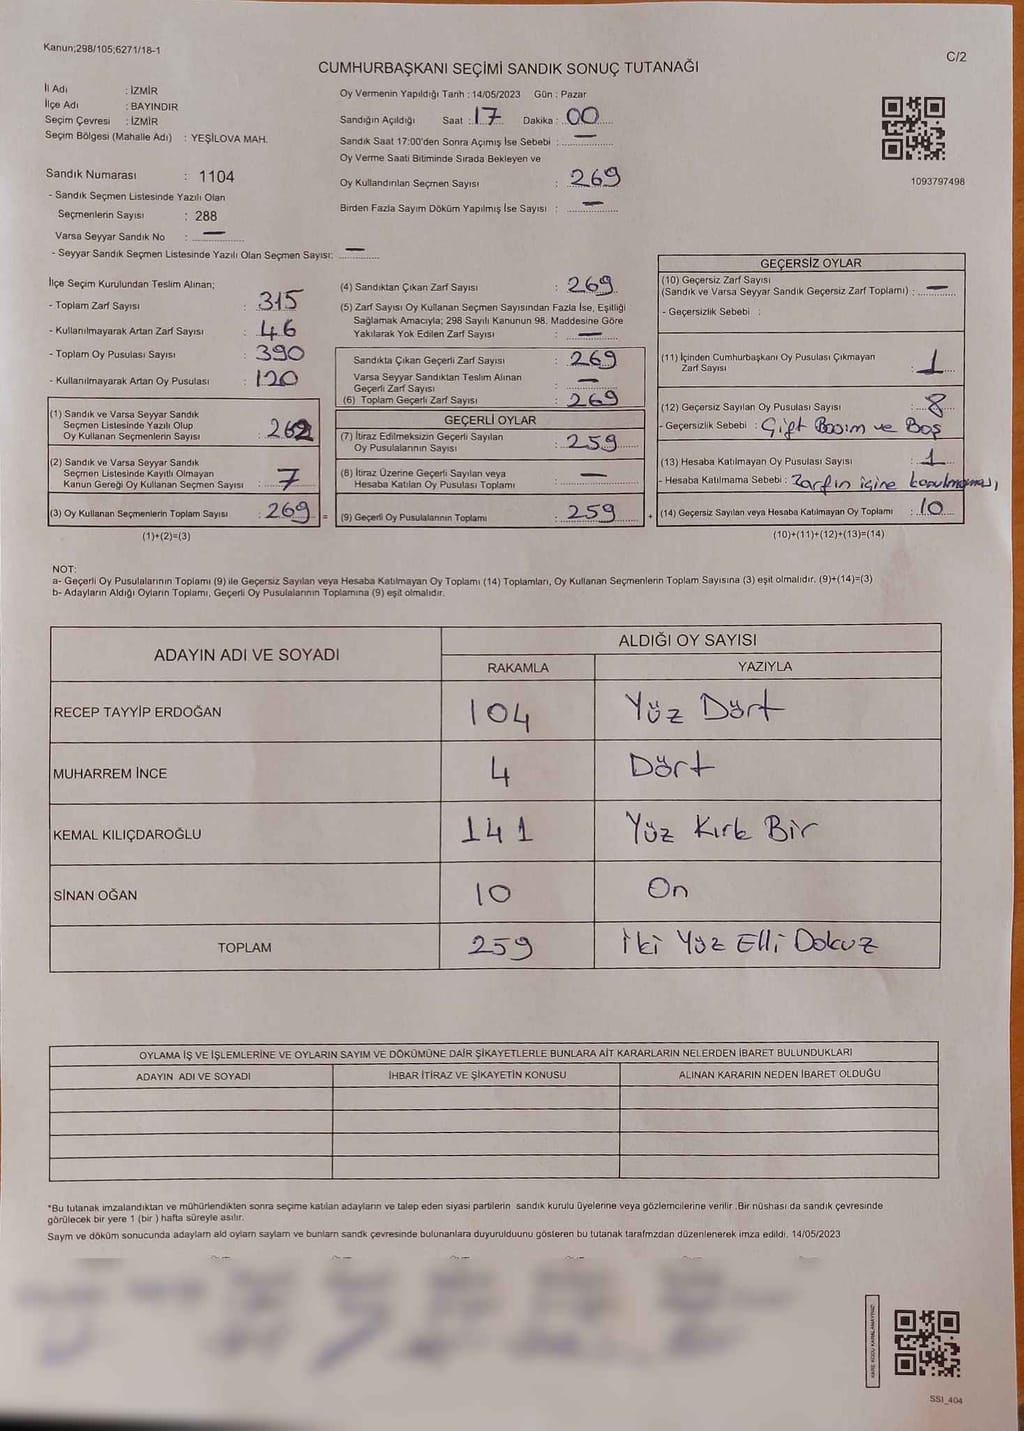 Kanun;298/105;6271/18-1
C/2
CUMHURBAŞKANI SEÇİMİ SANDIK SONUÇ TUTANAĞI
İl Adı : İZMİR
İlçe Adı : BAYINDIR
Seçim Çevresi : İZMİR
Seçim Bölgesi (Mahalle Adı) : YEŞİLOVA MAH.
Sandık Numarası : 1104
- Sandık Seçmen Listesinde Yazılı Olan
Seçmenlerin Sayısı : 288
Varsa Seyyar Sandık No : —
- Seyyar Sandık Seçmen Listesinde Yazılı Olan Seçmen Sayısı: —
Oy Vermenin Yapıldığı Tarih : 14/05/2023 Gün : Pazar
Sandığın Açıldığı Saat : 17 Dakika : 00
Sandık Saat 17:00'den Sonra Açımış İse Sebebi : —
Oy Verme Saati Bitiminde Sırada Bekleyen ve
Oy Kullandırılan Seçmen Sayısı : 269
Birden Fazla Sayım Döküm Yapılmış İse Sayısı : —
1093797498
İlçe Seçim Kurulundan Teslim Alınan;
- Toplam Zarf Sayısı : 315
- Kullanılmayarak Artan Zarf Sayısı : 46
- Toplam Oy Pusulası Sayısı : 390
- Kullanılmayarak Artan Oy Pusulası : 120
(1) Sandık ve Varsa Seyyar Sandık
Seçmen Listesinde Yazılı Olup
Oy Kullanan Seçmenlerin Sayısı : 262
(2) Sandık ve Varsa Seyyar Sandık
Seçmen Listesinde Kayıtlı Olmayan
Kanun Gereği Oy Kullanan Seçmen Sayısı : 7
(3) Oy Kullanan Seçmenlerin Toplam Sayısı : 269 =
(1)+(2)=(3)
(4) Sandıktan Çıkan Zarf Sayısı : 269
(5) Zarf Sayısı Oy Kullanan Seçmen Sayısından Fazla İse, Eşitliği
Sağlamak Amacıyla; 298 Sayılı Kanunun 98. Maddesine Göre
Yakılarak Yok Edilen Zarf Sayısı : —
Sandıkta Çıkan Geçerli Zarf Sayısı : 269
Varsa Seyyar Sandıktan Teslim Alınan
Geçerli Zarf Sayısı : —
(6) Toplam Geçerli Zarf Sayısı : 269
GEÇERLİ OYLAR
(7) İtiraz Edilmeksizin Geçerli Sayılan
Oy Pusulalarının Sayısı : 259
(8) İtiraz Üzerine Geçerli Sayılan veya
Hesaba Katılan Oy Pusulası Toplamı : —
(9) Geçerli Oy Pusulalarının Toplamı : 259 +
GEÇERSİZ OYLAR
(10) Geçersiz Zarf Sayısı
(Sandık ve Varsa Seyyar Sandık Geçersiz Zarf Toplamı) : —
- Geçersizlik Sebebi :
(11) İçinden Cumhurbaşkanı Oy Pusulası Çıkmayan
Zarf Sayısı : 1
(12) Geçersiz Sayılan Oy Pusulası Sayısı : 8
- Geçersizlik Sebebi : Çift Basım ve Boş
(13) Hesaba Katılmayan Oy Pusulası Sayısı : 1
- Hesaba Katılmama Sebebi : Zarfın içine konulmaması,
(14) Geçersiz Sayılan veya Hesaba Katılmayan Oy Toplamı : 10
(10)+(11)+(12)+(13)=(14)
NOT:
a- Geçerli Oy Pusulalarının Toplamı (9) ile Geçersiz Sayılan veya Hesaba Katılmayan Oy Toplamı (14) Toplamları, Oy Kullanan Seçmenlerin Toplam Sayısına (3) eşit olmalıdır. (9)+(14)=(3)
b- Adayların Aldığı Oyların Toplamı, Geçerli Oy Pusulalarının Toplamına (9) eşit olmalıdır.
ADAYIN ADI VE SOYADI ALDIĞI OY SAYISI
RAKAMLA YAZIYLA
RECEP TAYYİP ERDOĞAN 104 Yüz Dört
MUHARREM İNCE 4 Dört
KEMAL KILIÇDAROĞLU 141 Yüz Kırk Bir
SİNAN OĞAN 10 On
TOPLAM 259 İki Yüz Elli Dokuz
OYLAMA İŞ VE İŞLEMLERİNE VE OYLARIN SAYIM VE DÖKÜMÜNE DAİR ŞİKAYETLERLE BUNLARA AİT KARARLARIN NELERDEN İBARET BULUNDUKLARI
ADAYIN ADI VE SOYADI İHBAR İTİRAZ VE ŞİKAYETİN KONUSU ALINAN KARARIN NEDEN İBARET OLDUĞU
*Bu tutanak imzalandıktan ve mühürlendikten sonra seçime katılan adayların ve talep eden siyasi partilerin sandık kurulu üyelerine veya gözlemcilerine verilir .Bir nüshası da sandık çevresinde
görülecek bir yere 1 (bir ) hafta süreyle asılır.
Saym ve döküm sonucunda adaylarn ald oylarn saylarn ve bunlarn sandk çevresinde bulunanlara duyurulduunu gösteren bu tutanak tarafmzdan düzenlenerek imza edildi. 14/05/2023
KARE KODU KARALAMAYINIZ!
SSI_404